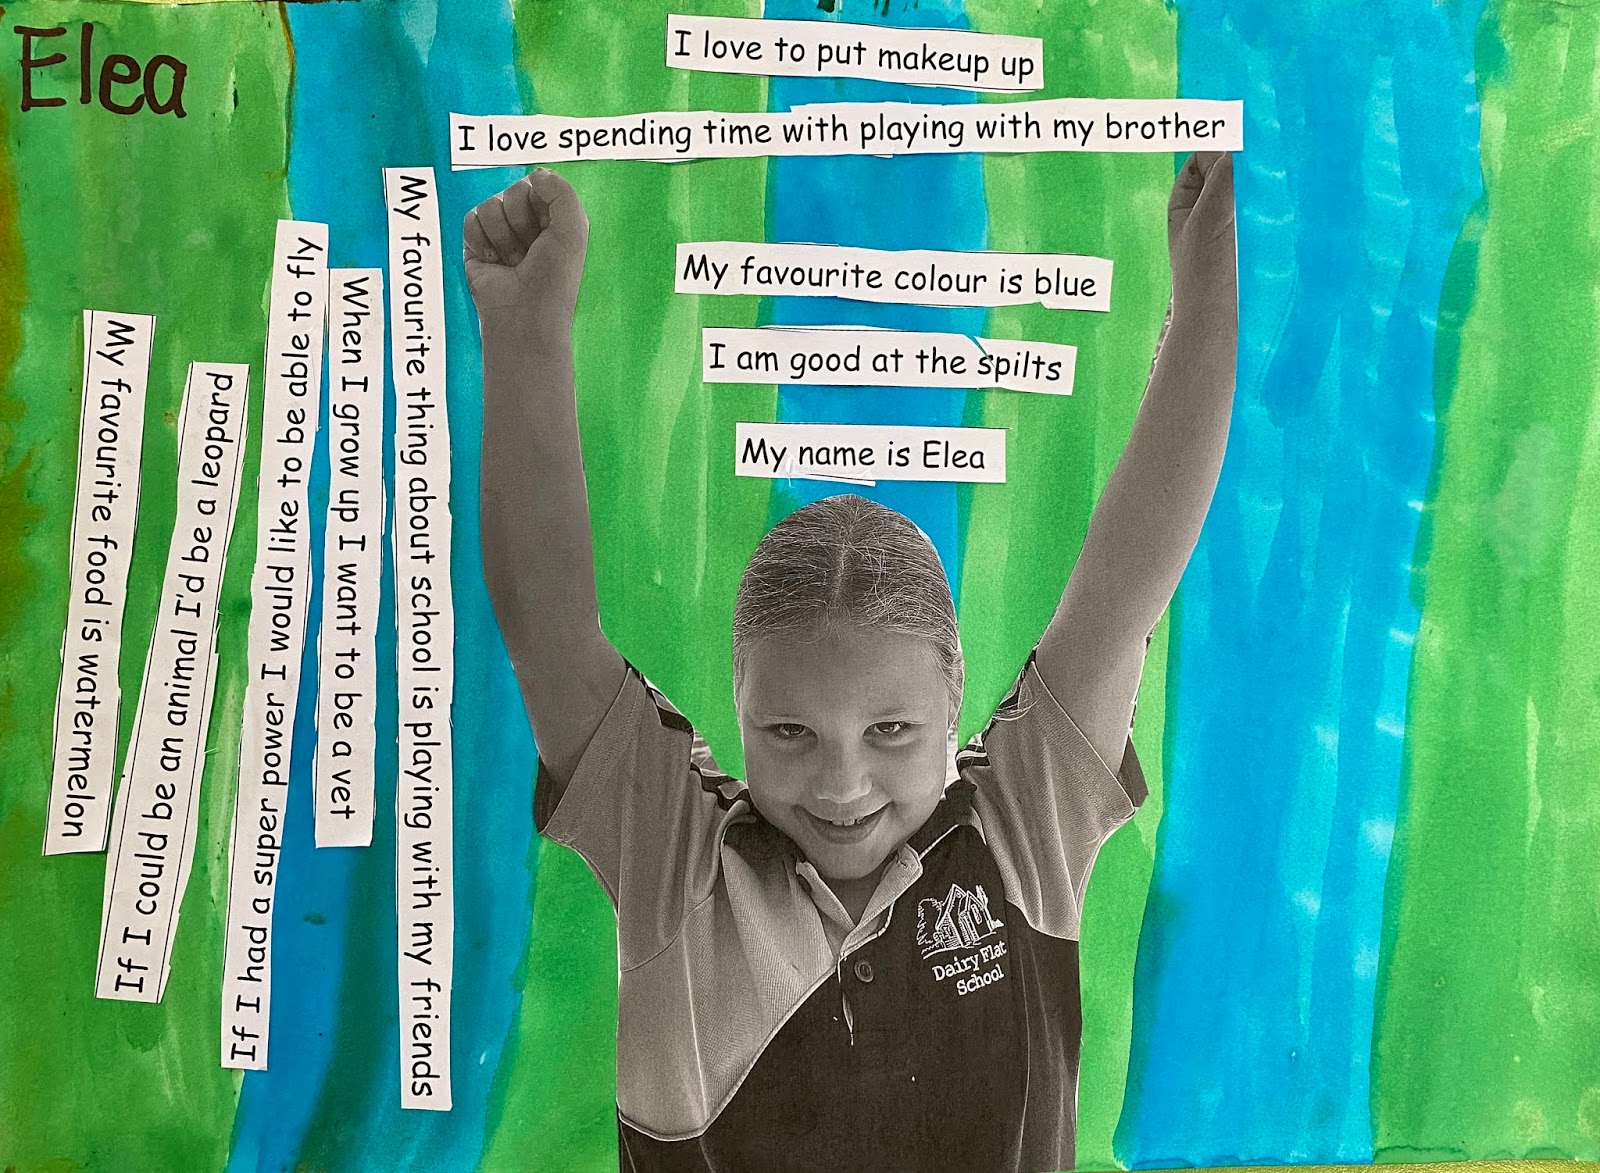 Elea
I love to put makeup up
I love spending time with playing with my brother
My favourite colour is blue
I am good at the spilts
My name is Elea
My favourite food is watermelon
If I could be an animal I'd be a leopard
If I had a super power I would like to be able to fly
When I grow up I want to be a vet
My favourite thing about school is playing with my friends
Dairy Flat
School